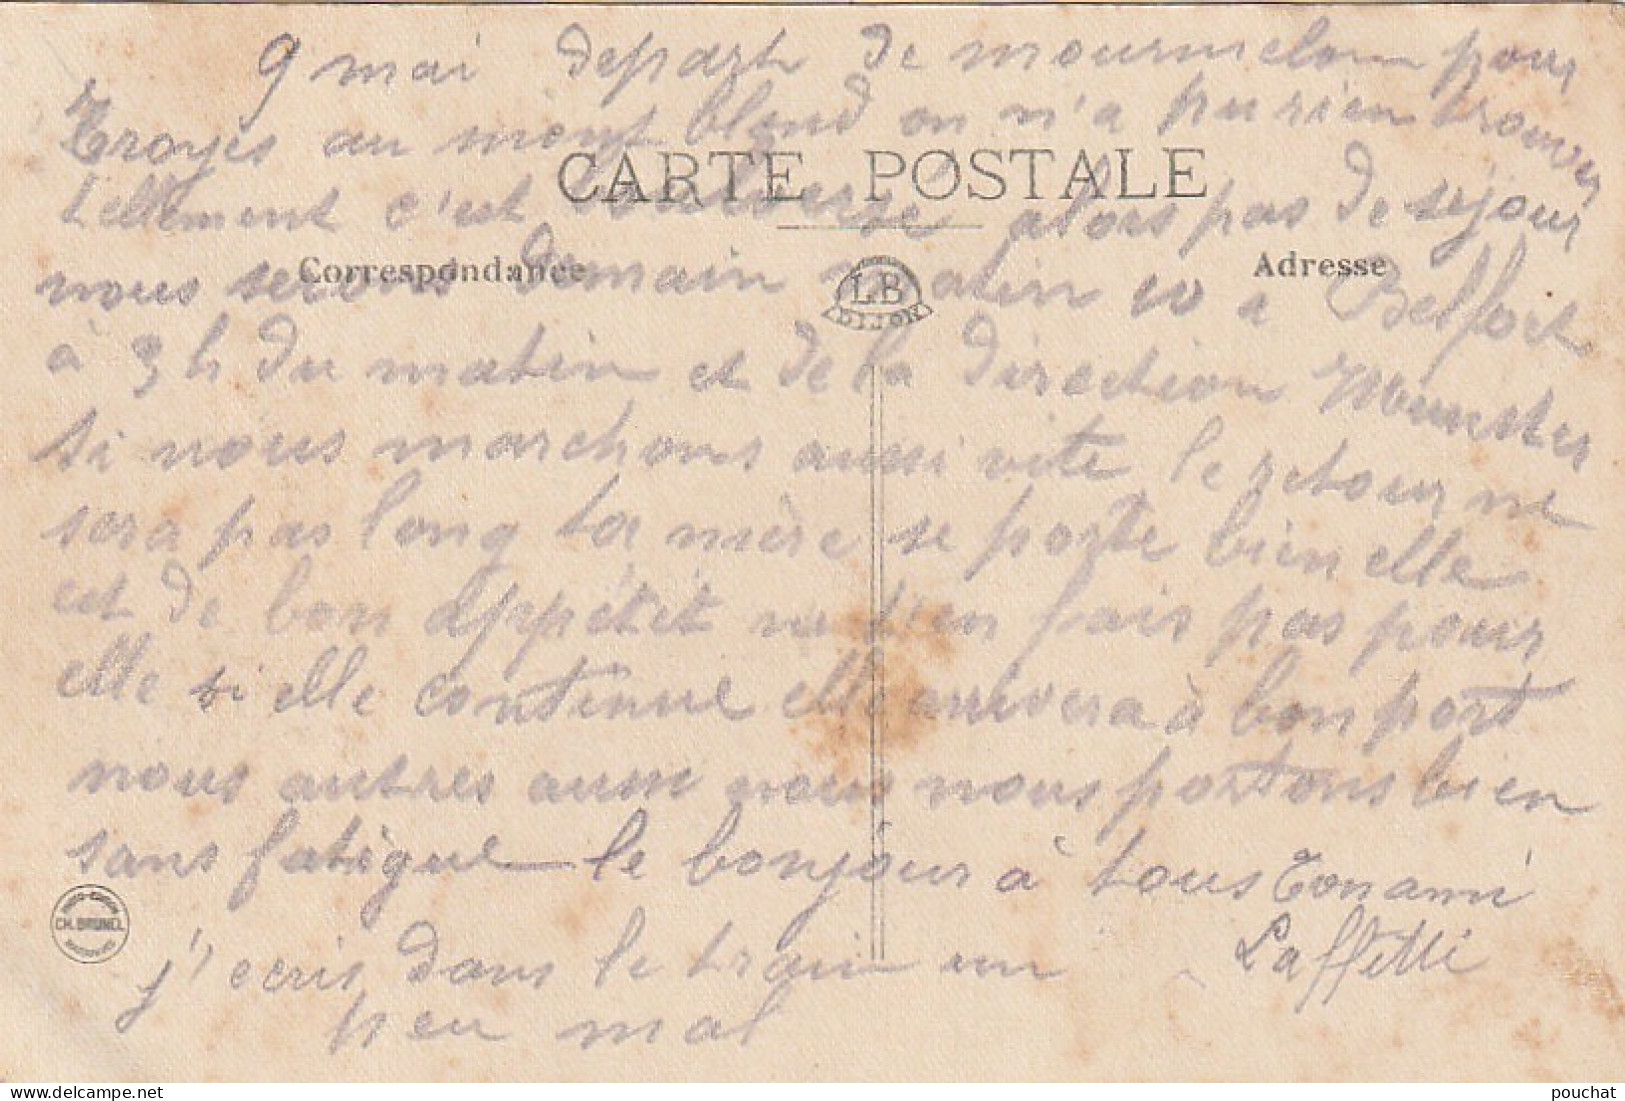 9 mai depart de mourmelon pour
Troyes au mont blond on n'a pu rien trouver
CARTE POSTALE
tellement c'est boulversé alors pas de sejour
Correspondance
Adresse
LB
DIJON
nous serons demain matin 10 a Belfort
à 3 h du matin et de la direction Munster
si nous marchons aussi vite le retour ne
sera pas long ta mère se porte bien elle
est de bon appétit ne t'en fais pas pour
elle si elle continue elle arrivera à bon port
nous autres aussi nous nous portons bien
sans fatigue le bonjour à tous Ton ami
CH. BRUNEL
Laffetti
j'ecris dans le train un
peu mal
pouchat